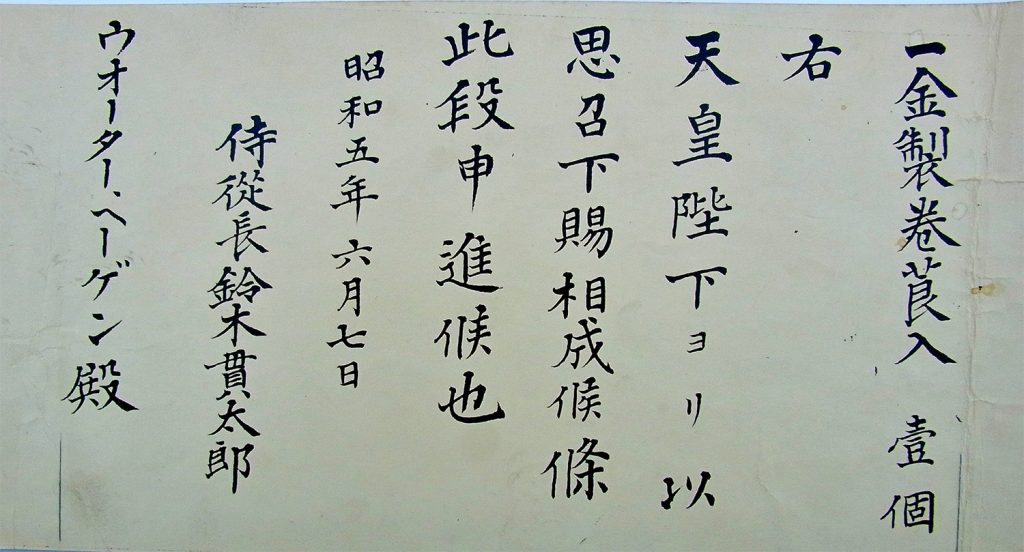 一金製巻莨入　壹個
右
天皇陛下ヨリ以
思召下賜相成候條
此段申進候也
昭和五年六月七日
侍從長鈴木貫太郎
ウオーター、ヘーゲン殿